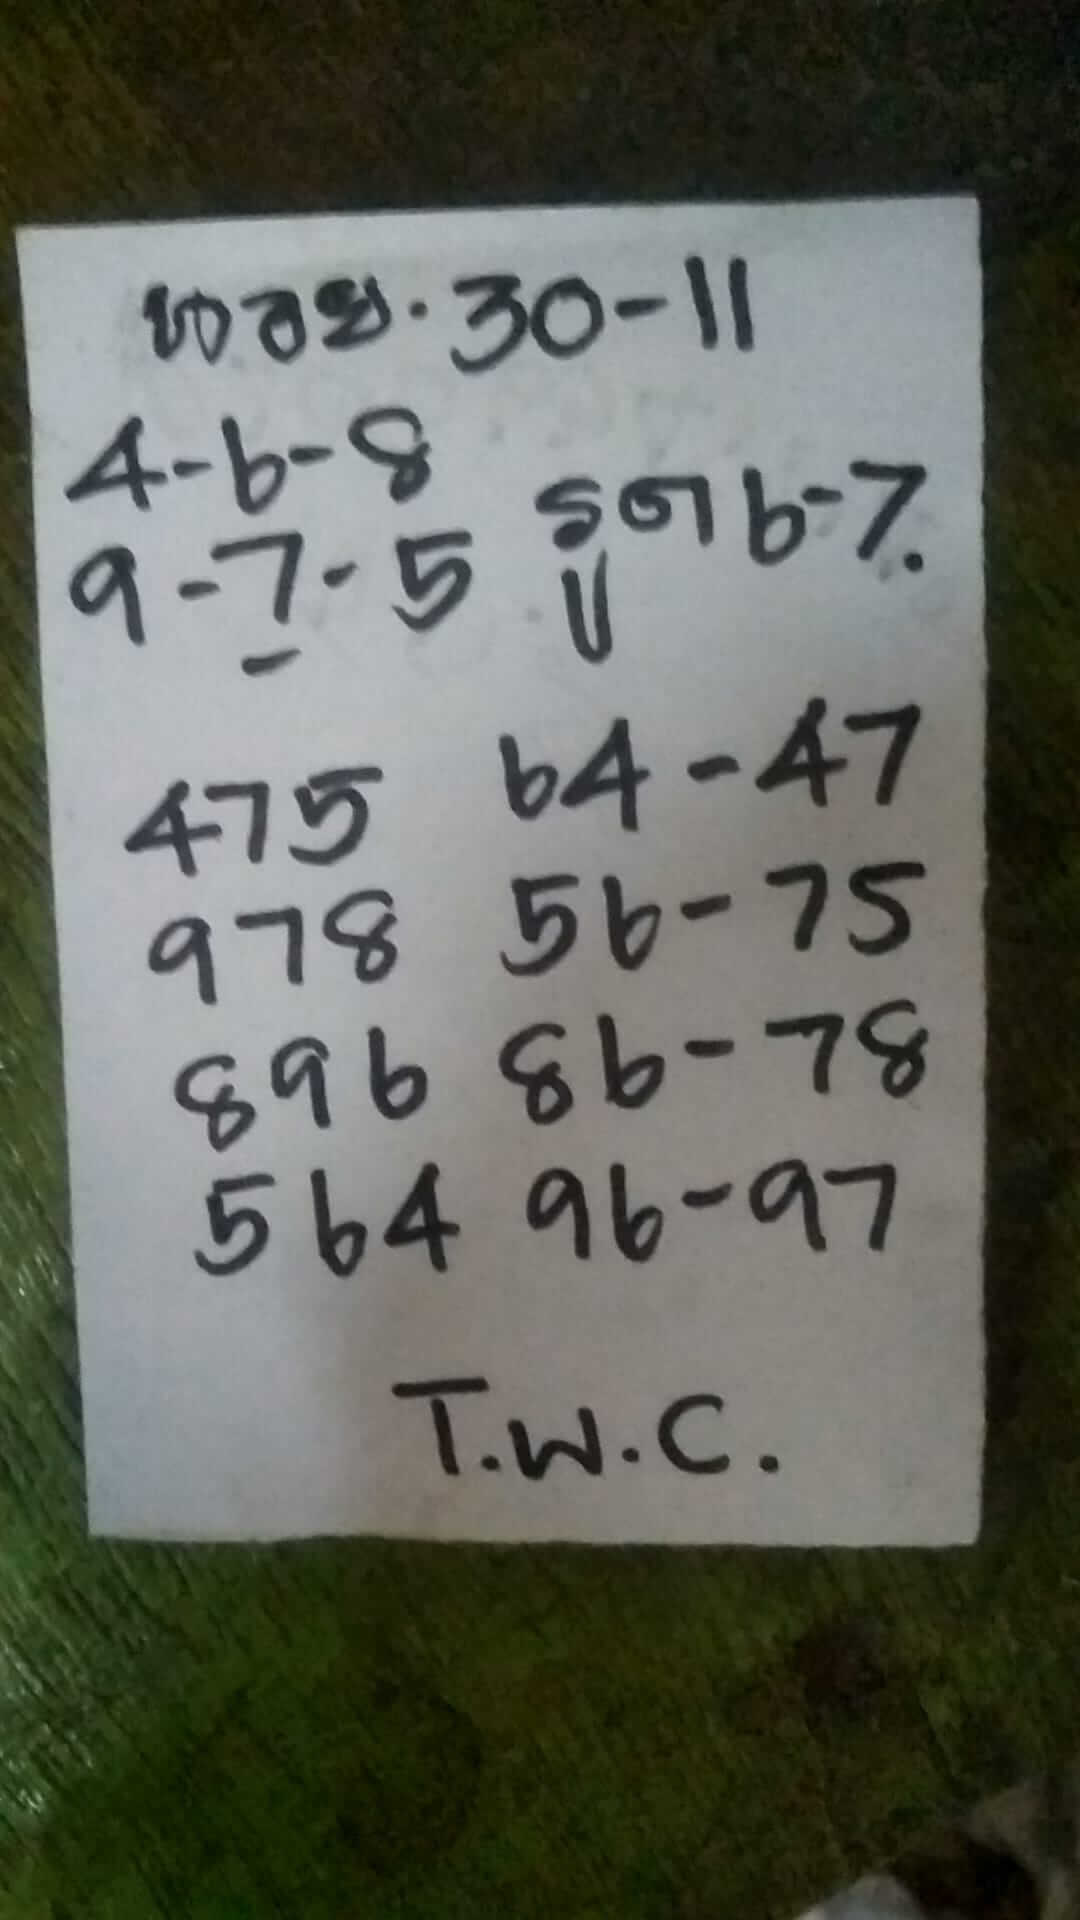 หวย.30-11
4-6-8
9-7-5 รูด 6-7.
475 64-47
978 56-75
896 86-78
564 96-97
T.W.C.